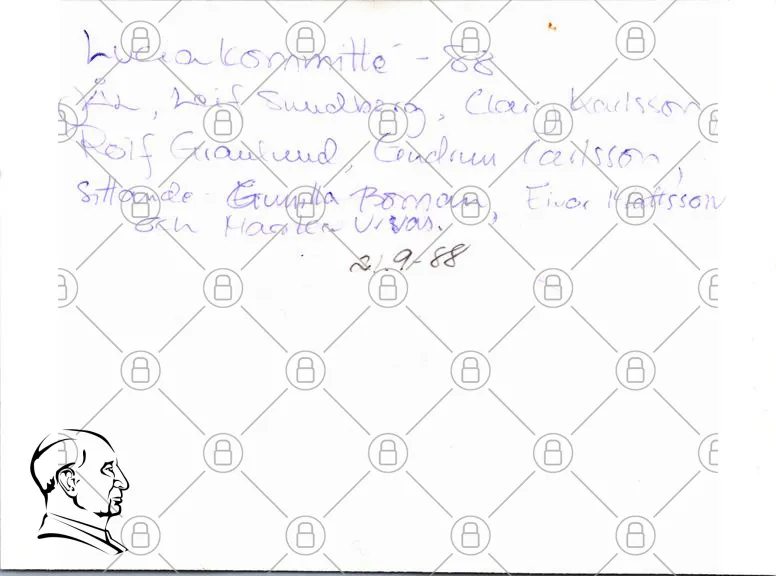 Luciakommitté - 88
ÅL, Leif Sundberg, Clas Karlsson
Rolf Granlund, Gudrun Carlsson,
Sittande Gunilla Boman, Einar Mattsson
och Vivas.
21.9-88